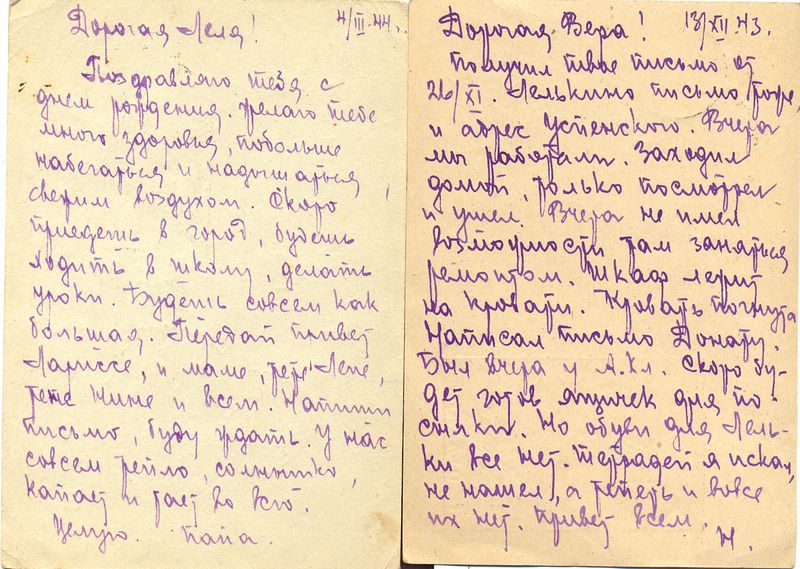 Дорогая Леля! 4/III.44.
Поздравляю тебя с
днем рождения. Желаю тебе
много здоровья, побольше
набегаться и надышаться
свежим воздухом. Скоро
приедешь в город, будешь
ходить в школу, делать
уроки. Будешь совсем как
большая. Передай привет
Лариссе, и маме, тете Лене,
тете Нине и всем. Напиши
письмо, буду ждать. У нас
совсем тепло, солнышко,
капает и тает во всю.
Целую. Папа.
Дорогая Вера! 13/XII.43.
Получил твое письмо от
26/XI. Лелькино письмо тоже,
и адрес Успенского. Вчера
мы работали. Заходил
домой, только посмотрел
и ушел. Вчера не имел
возможности там заняться
ремонтом. Шкаф лежит
на кровати. Кровать погнута
Написал письмо Донату.
Был вчера у А.Хл. Скоро бу-
дет готов ящичек для по-
сылки. Но обуви для Лель-
ки все нет. Тетрадей я искал,
не нашел, а теперь и вовсе
их нет. Привет всем.
Н.